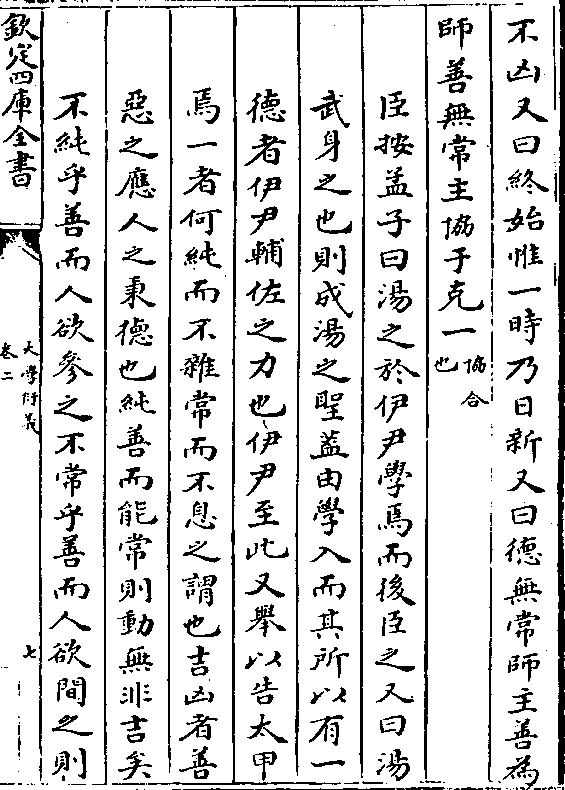 不凶又曰終始惟一時乃日新又曰德無常師主善為
師善無常主協于克一協合也
臣按孟子曰湯之於伊尹學焉而後臣之又曰湯
武身之也則成湯之聖蓋由學入而其所以有一
德者伊尹輔佐之力也伊尹至此又舉以告太甲
焉一者何純而不雜常而不息之謂也吉凶者善
惡之應人之秉德也純善而能常則動無非吉矣
不純乎善而人欲參之不常乎善而人欲間之則
欽定四庫全書
大學衍義
卷二
七